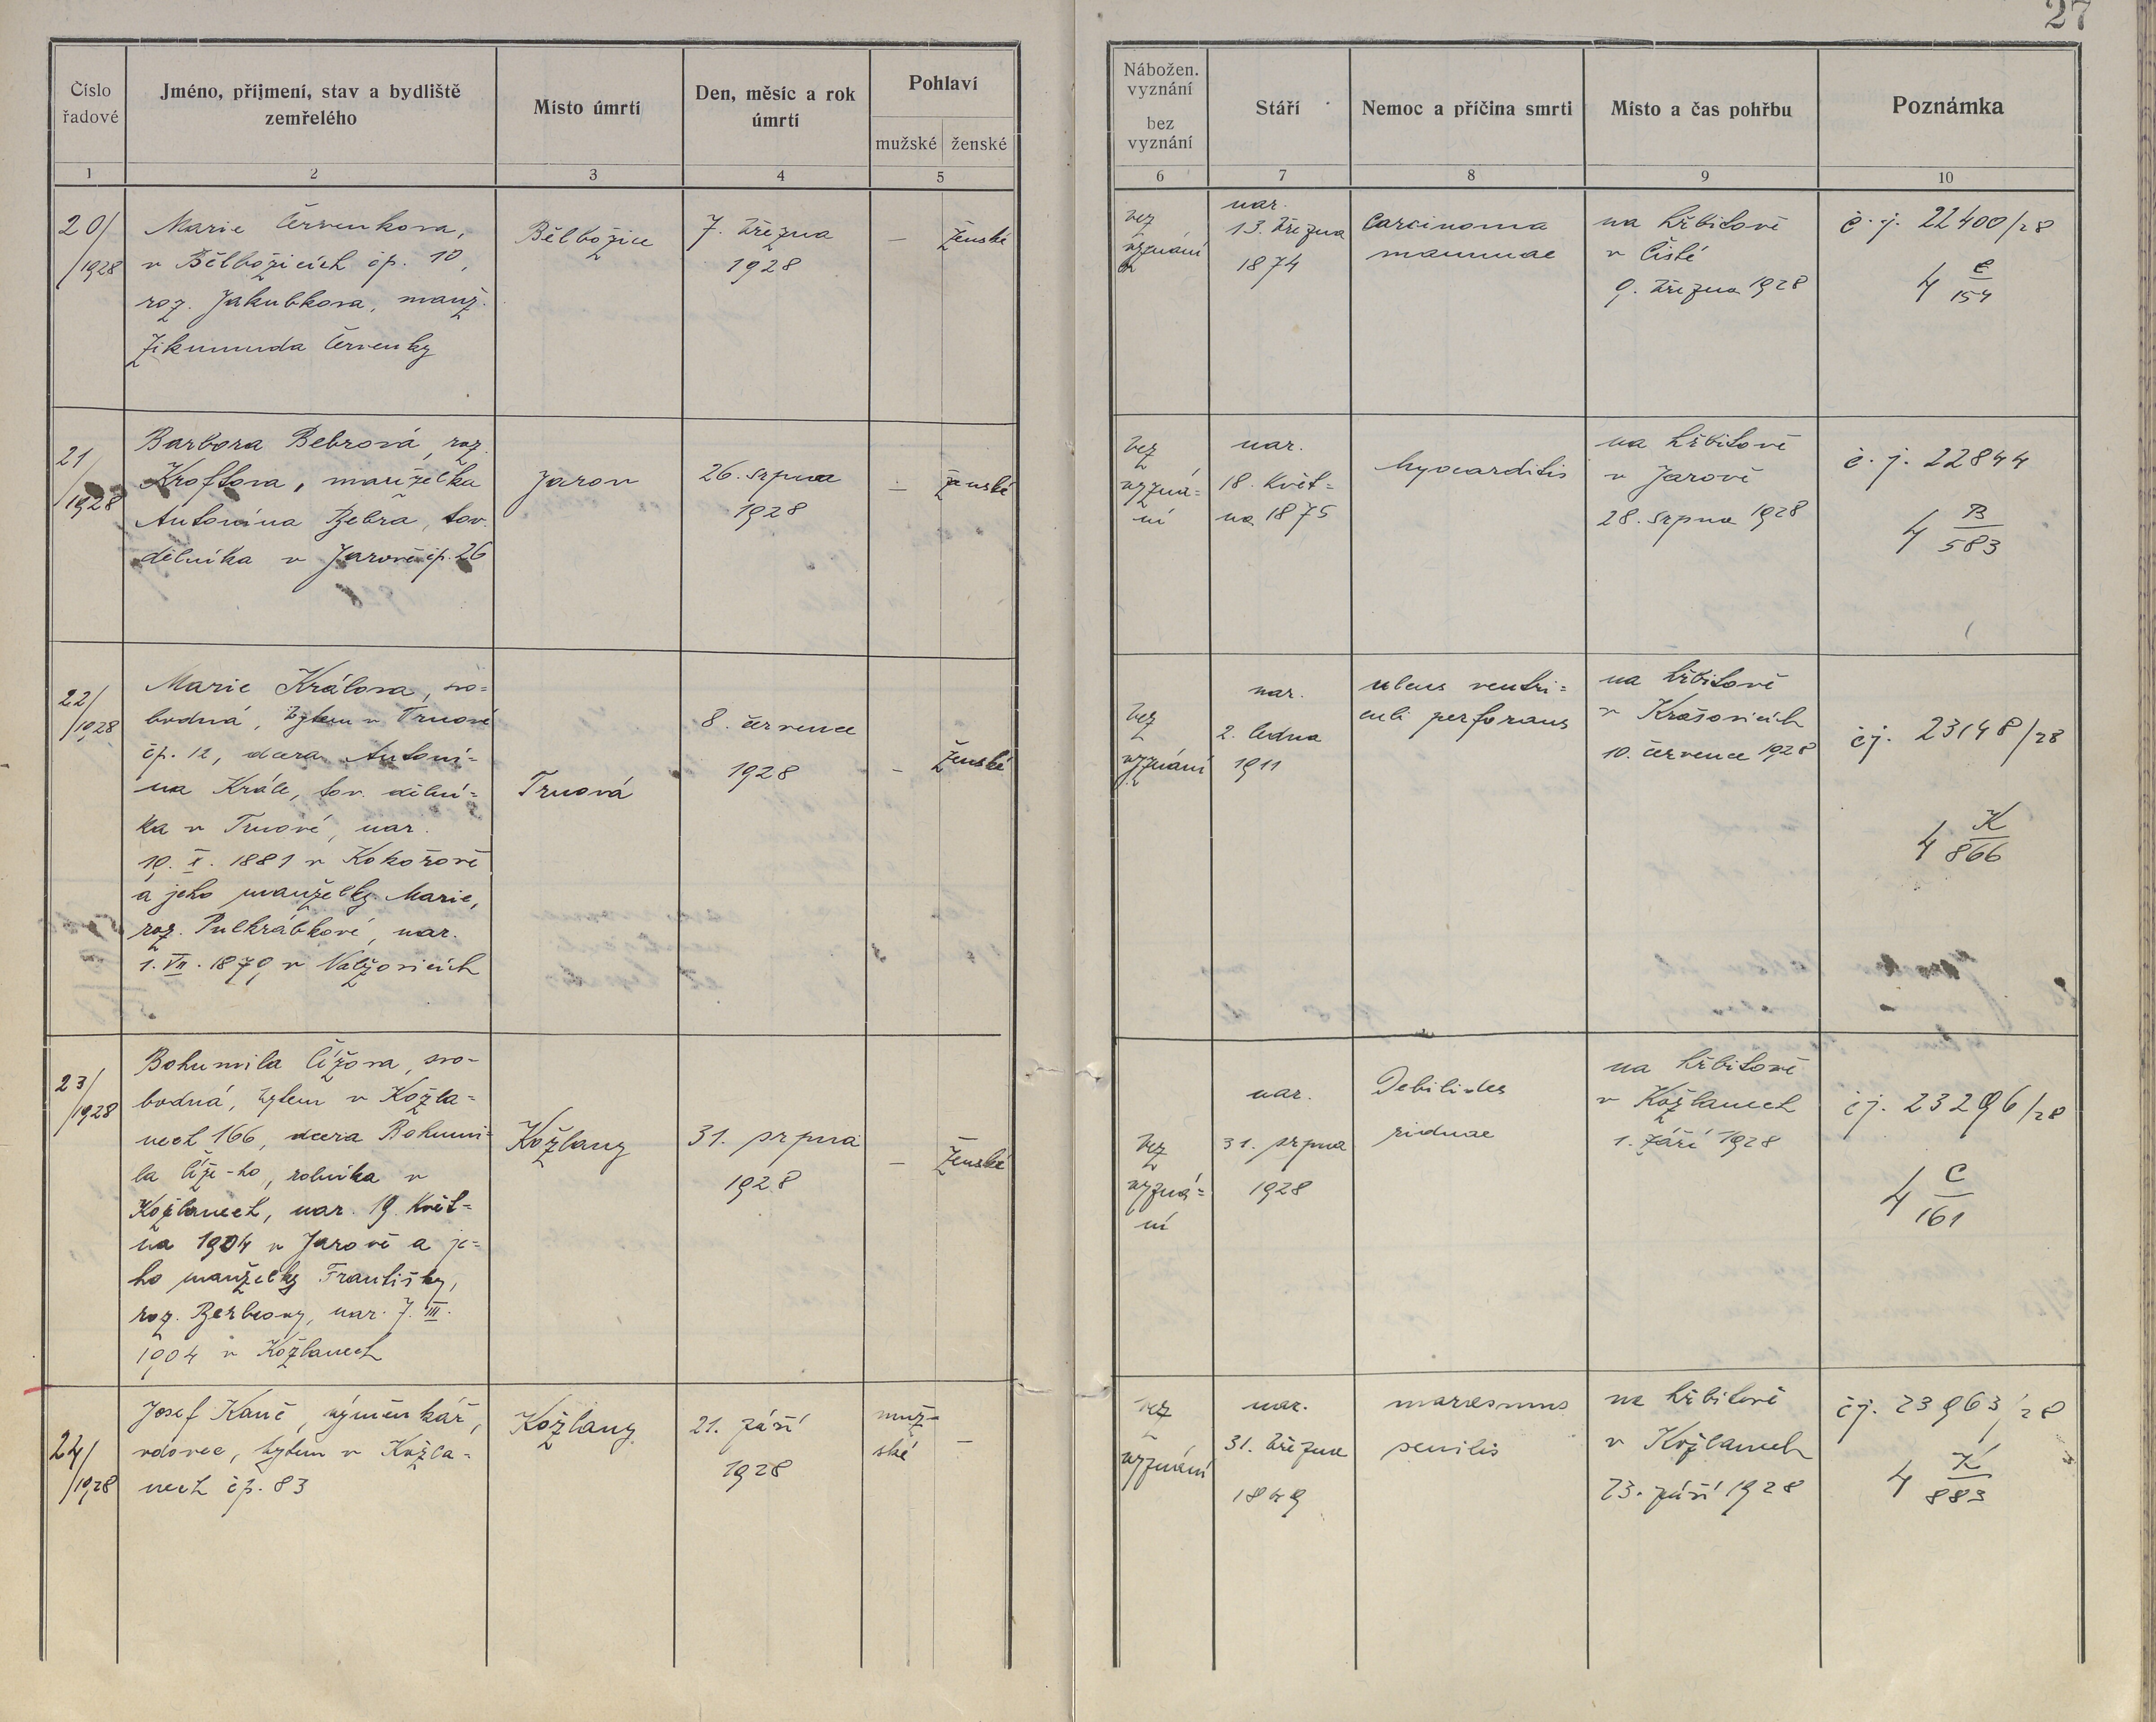 27
Číslo řadové
Jméno, příjmení, stav a bydliště
zemřelého
Místo úmrtí
Den, měsíc a rok
úmrtí
Pohlaví
mužské
ženské
Nábožen.
vyznání
bez
vyznání
Stáří
Nemoc a příčina smrti
Místo a čas pohřbu
Poznámka
1
2
3
4
5
6
7
8
9
10
20/
/1928
Marie Červenkova,
v Bělbožicích čp. 10,
roz. Jakubkova, manž.
Zikmunda Červenky
Bělbožice
7. března
1928
—
ženské
bez
vyznání
nar.
13. března
1874
Carcinoma
mammae
na hřbitově
v Čisté
9. března 1928
č. j. 22400/28
4 Č
154
21/
/1928
Barbora Bebrová, roz.
Kroftova, manželka
Antonína Bebra, tov.
dělníka v Jarově čp. 26
Jarov
26. srpna
1928
—
ženské
bez
vyzná=
ní
nar.
18. květ=
na 1875
Myocarditis
na hřbitově
v Jarově
28. srpna 1928
č. j. 22844
4 B
583
22/
/1928
Marie Králova, svo=
bodná, bytem v Trnové
čp. 12, dcera Antoní=
na Krále, tov. dělní=
ka v Trnové, nar.
19. X. 1881 v Kokořově
a jeho manželky Marie,
roz. Pulkrábkové, nar.
1. VII. 1879 v Nalžovicích
Trnová
8. července
1928
—
ženské
bez
vyznání
nar.
2. ledna
1911
ulcus ventri=
culi perforans
na hřbitově
v Krašovicích
10. července 1928
čj. 23148/28
4 K
866
23/
/1928
Bohumila Čížova, svo-
bodná, bytem v Kožla=
nech 166, dcera Bohumi=
la Číže-ho, rolníka v
Kožlanech, nar. 19. květ=
na 1904 v Jarově a je=
ho manželky Františky,
roz. Berbrovy, nar. 7. III.
1904 v Kožlanech
Kožlany
31. srpna
1928
—
ženské
bez
vyzná=
ní
nar.
31. srpna
1928
na hřbitově
v Kožlanech
1. září 1928
čj. 23296/28
4 C
161
24/
/1928
Josef Kaně, výměnkář,
vdovec, bytem v Kožla-
nech čp. 83
Kožlany
21. září
1928
muž-
ské
—
bez
vyznání
nar.
31. března
1849
marasmus
senilis
na hřbitově
v Kožlanech
23. září 1928
čj. 23963/28
4 K
883